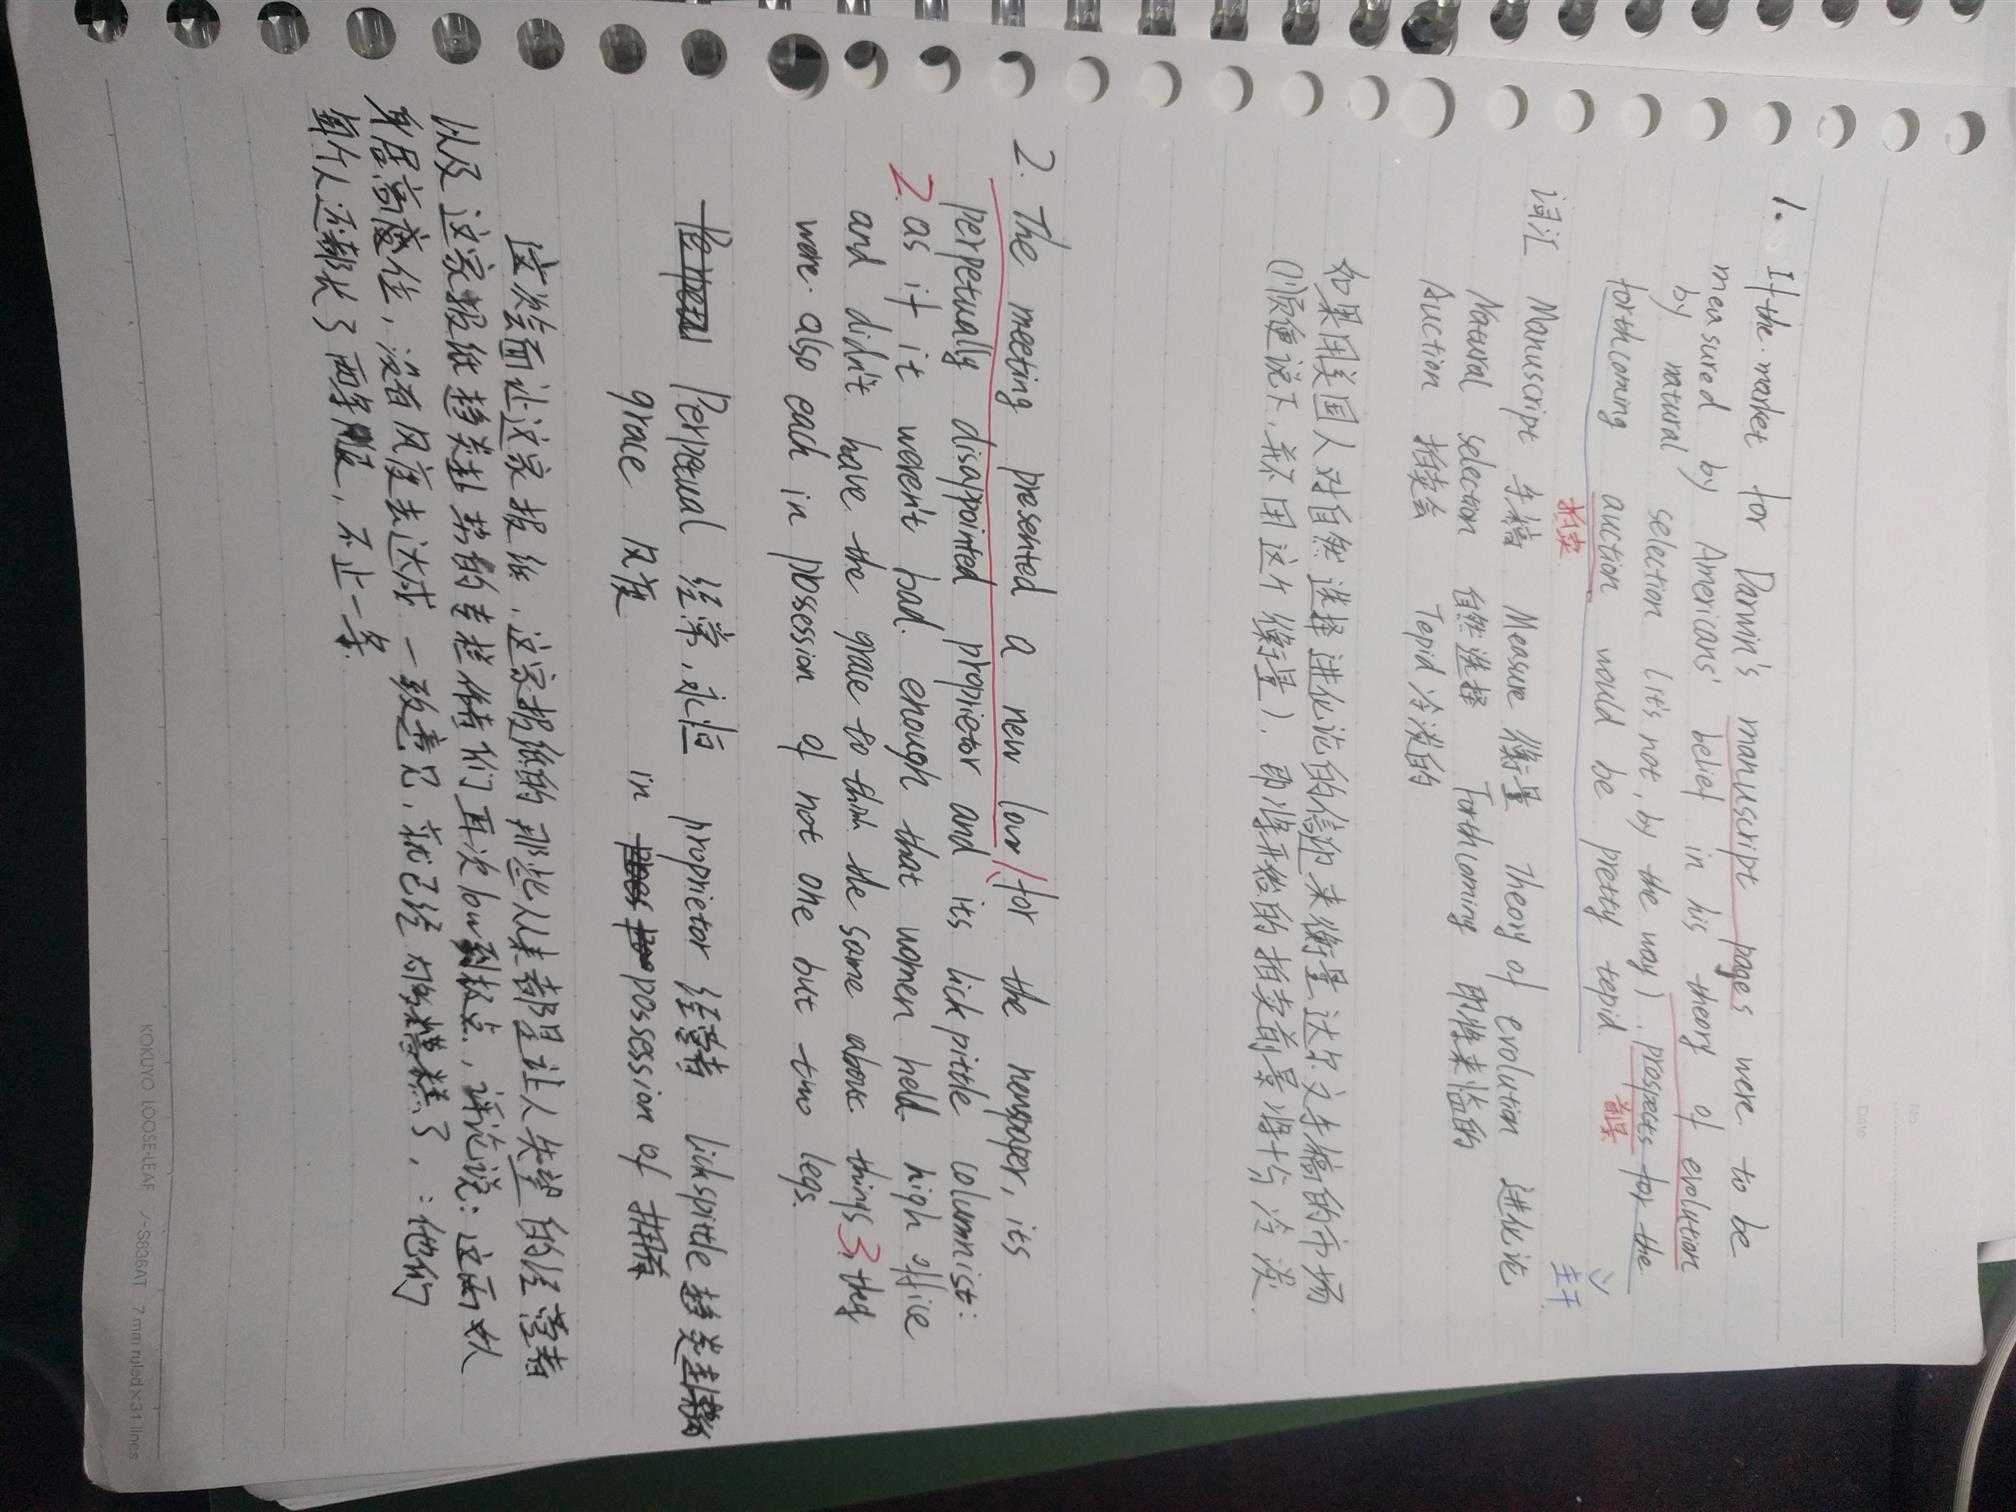 No.
Date
1. If the market for Darwin's manuscript pages were to be
measured by Americans' belief in his theory of evolution
by natural selection (it's not, by the way). prospects for the
前景
主干
forthcoming auction would be pretty tepid
拍卖
词汇 Manuscript 手稿 Measure 衡量 Theory of evolution 进化论
Natural selection 自然选择 Forthcoming 即将来临的
Auction 拍卖会 Tepid 冷淡的
如果用美国人对自然选择进化论的信仰来衡量达尔文手稿的市场
(顺便说下,并不用这个衡量),即将开始的拍卖前景将十分冷淡.
2. The meeting presented a new low for the newspaper, its
perpetually disappointed proprietor and its lickpittle columnist:
2 as if it weren't bad enough that women held high office
and didn't have the grace to think the same about things 3 they
were also each in possession of not one but two legs.
Perpeual 经常,永恒 proprietor 经营者 lickspittle 趋炎
grace 风度 in possession of
这次会面让这家报纸,这家报纸的那些从来都是让人失望的经营者
以及这家报纸趋炎赴势的专栏作者们再次low到极点,评论说:这两女人
身居高位,没有风度去达成一致意见,就已经够糟糕了,:他们
每个人还都长了两条腿,不止一条.
KOKUYO LOOSE-LEAF ノ-S836AT 7 mm ruled×31 lines